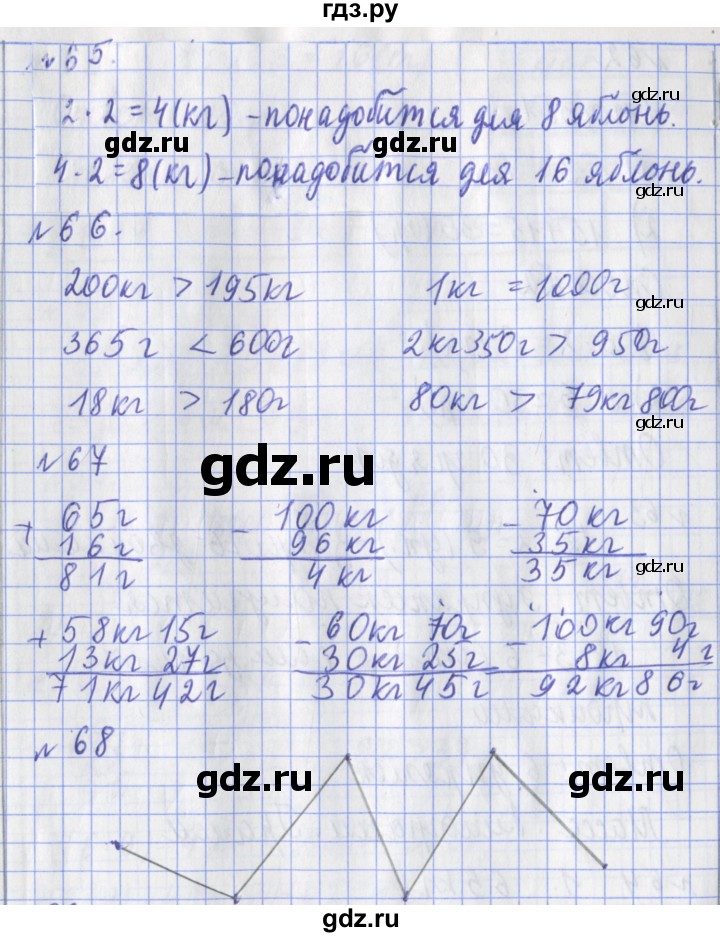 гдз.ру
№65.
2 · 2 = 4(кг) - понадобится для 8 яблонь.
gdz.ru gdz.ru
4 · 2 = 8(кг) - понадобится для 16 яблонь.
№66.
200кг > 195кг 1кг = 1000г
gdz.ru
365г < 600г 2кг350г > 950г
18кг > 180г 80кг > 79кг800г
gdz.ru
№67
gdz.ru
+ 65г - 100кг - 70кг
16г 96кг 35кг
81г 4кг 35кг
gdz.ru
+ 58кг 15г - 60кг 70г - 100кг 90г
13кг 27г 30кг 25г 8кг 4г
71кг 42г 30кг 45г 92кг86г
№68
gdz.ru gdz.ru
gdz.ru